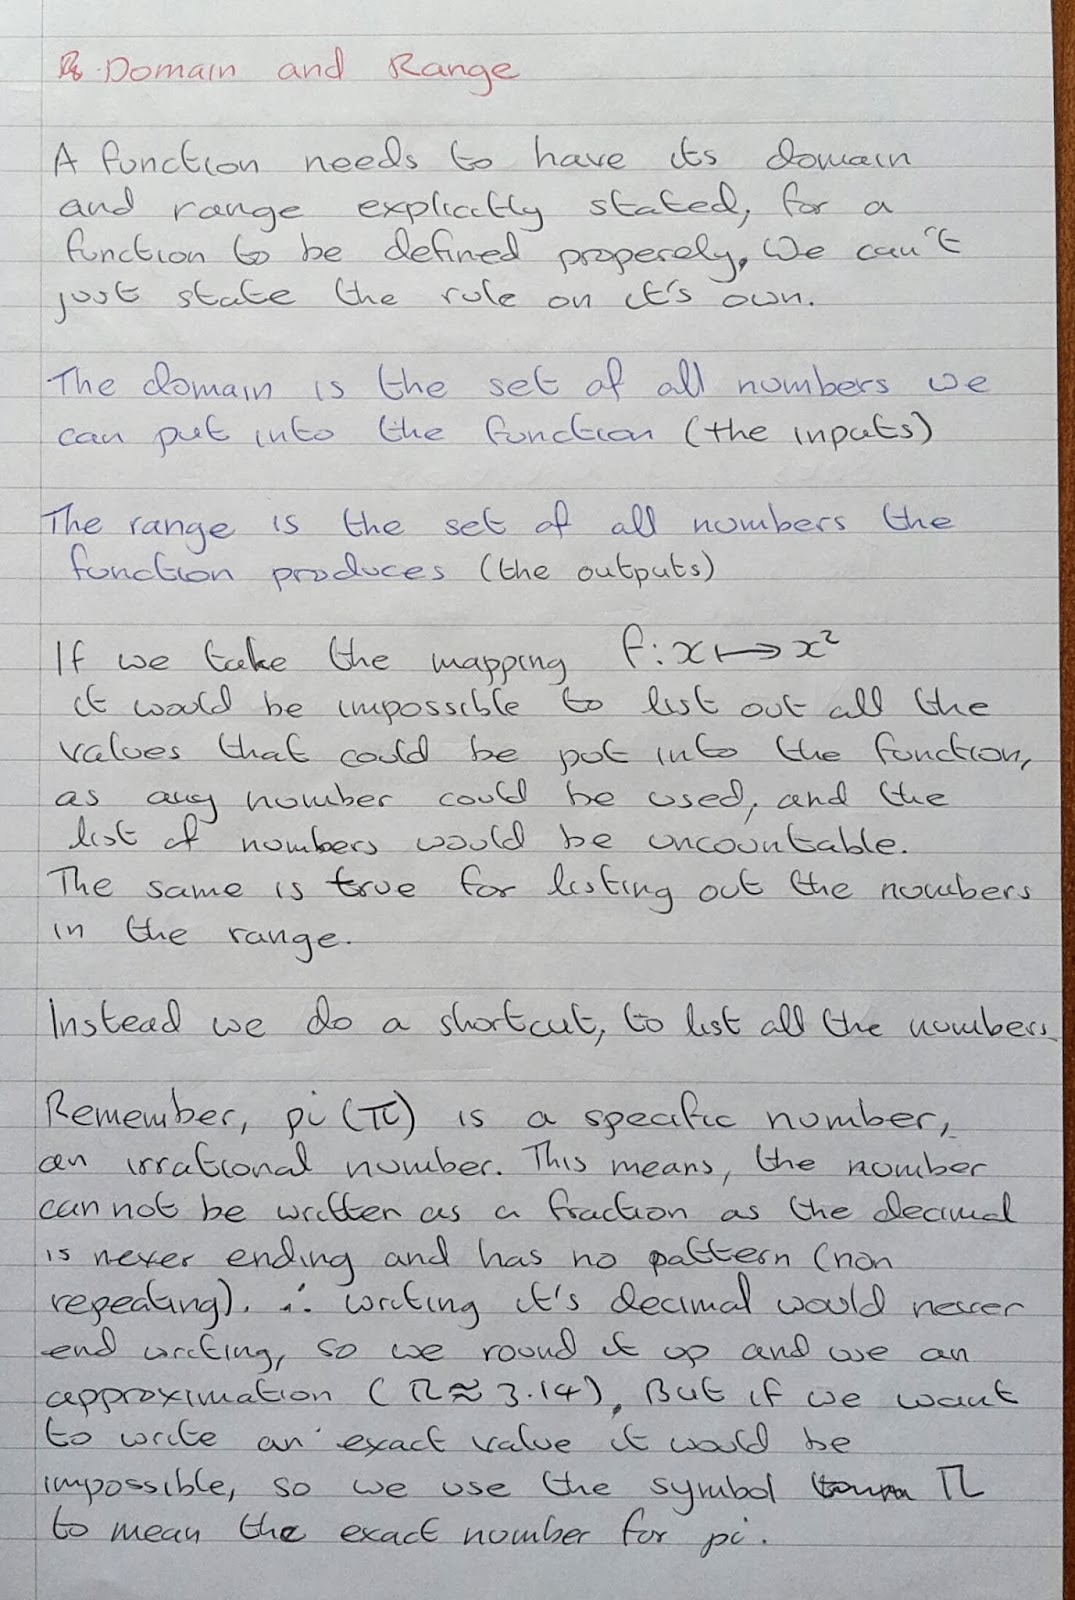 Domain and Range
A function needs to have its domain
and range explicitly stated, for a
function to be defined properely. We can't
just state the rule on it's own.
The domain is the set of all numbers we
can put into the function (the inputs)
The range is the set of all numbers the
function produces (the outputs)
If we take the mapping f: x ↦ x²
it would be impossible to list out all the
values that could be put into the function,
as any number could be used, and the
list of numbers would be uncountable.
The same is true for listing out the numbers
in the range.
Instead we do a shortcut, to list all the numbers
Remember, pi (π) is a specific number,
an irrational number. This means, the number
cannot be written as a fraction as the decimal
is never ending and has no pattern (non
repeating). ∴ writing it's decimal would never
end writing, so we round it up and we an
approximation (π ≈ 3.14). But if we want
to write an exact value it would be
impossible, so we use the symbol π
to mean the exact number for pi.